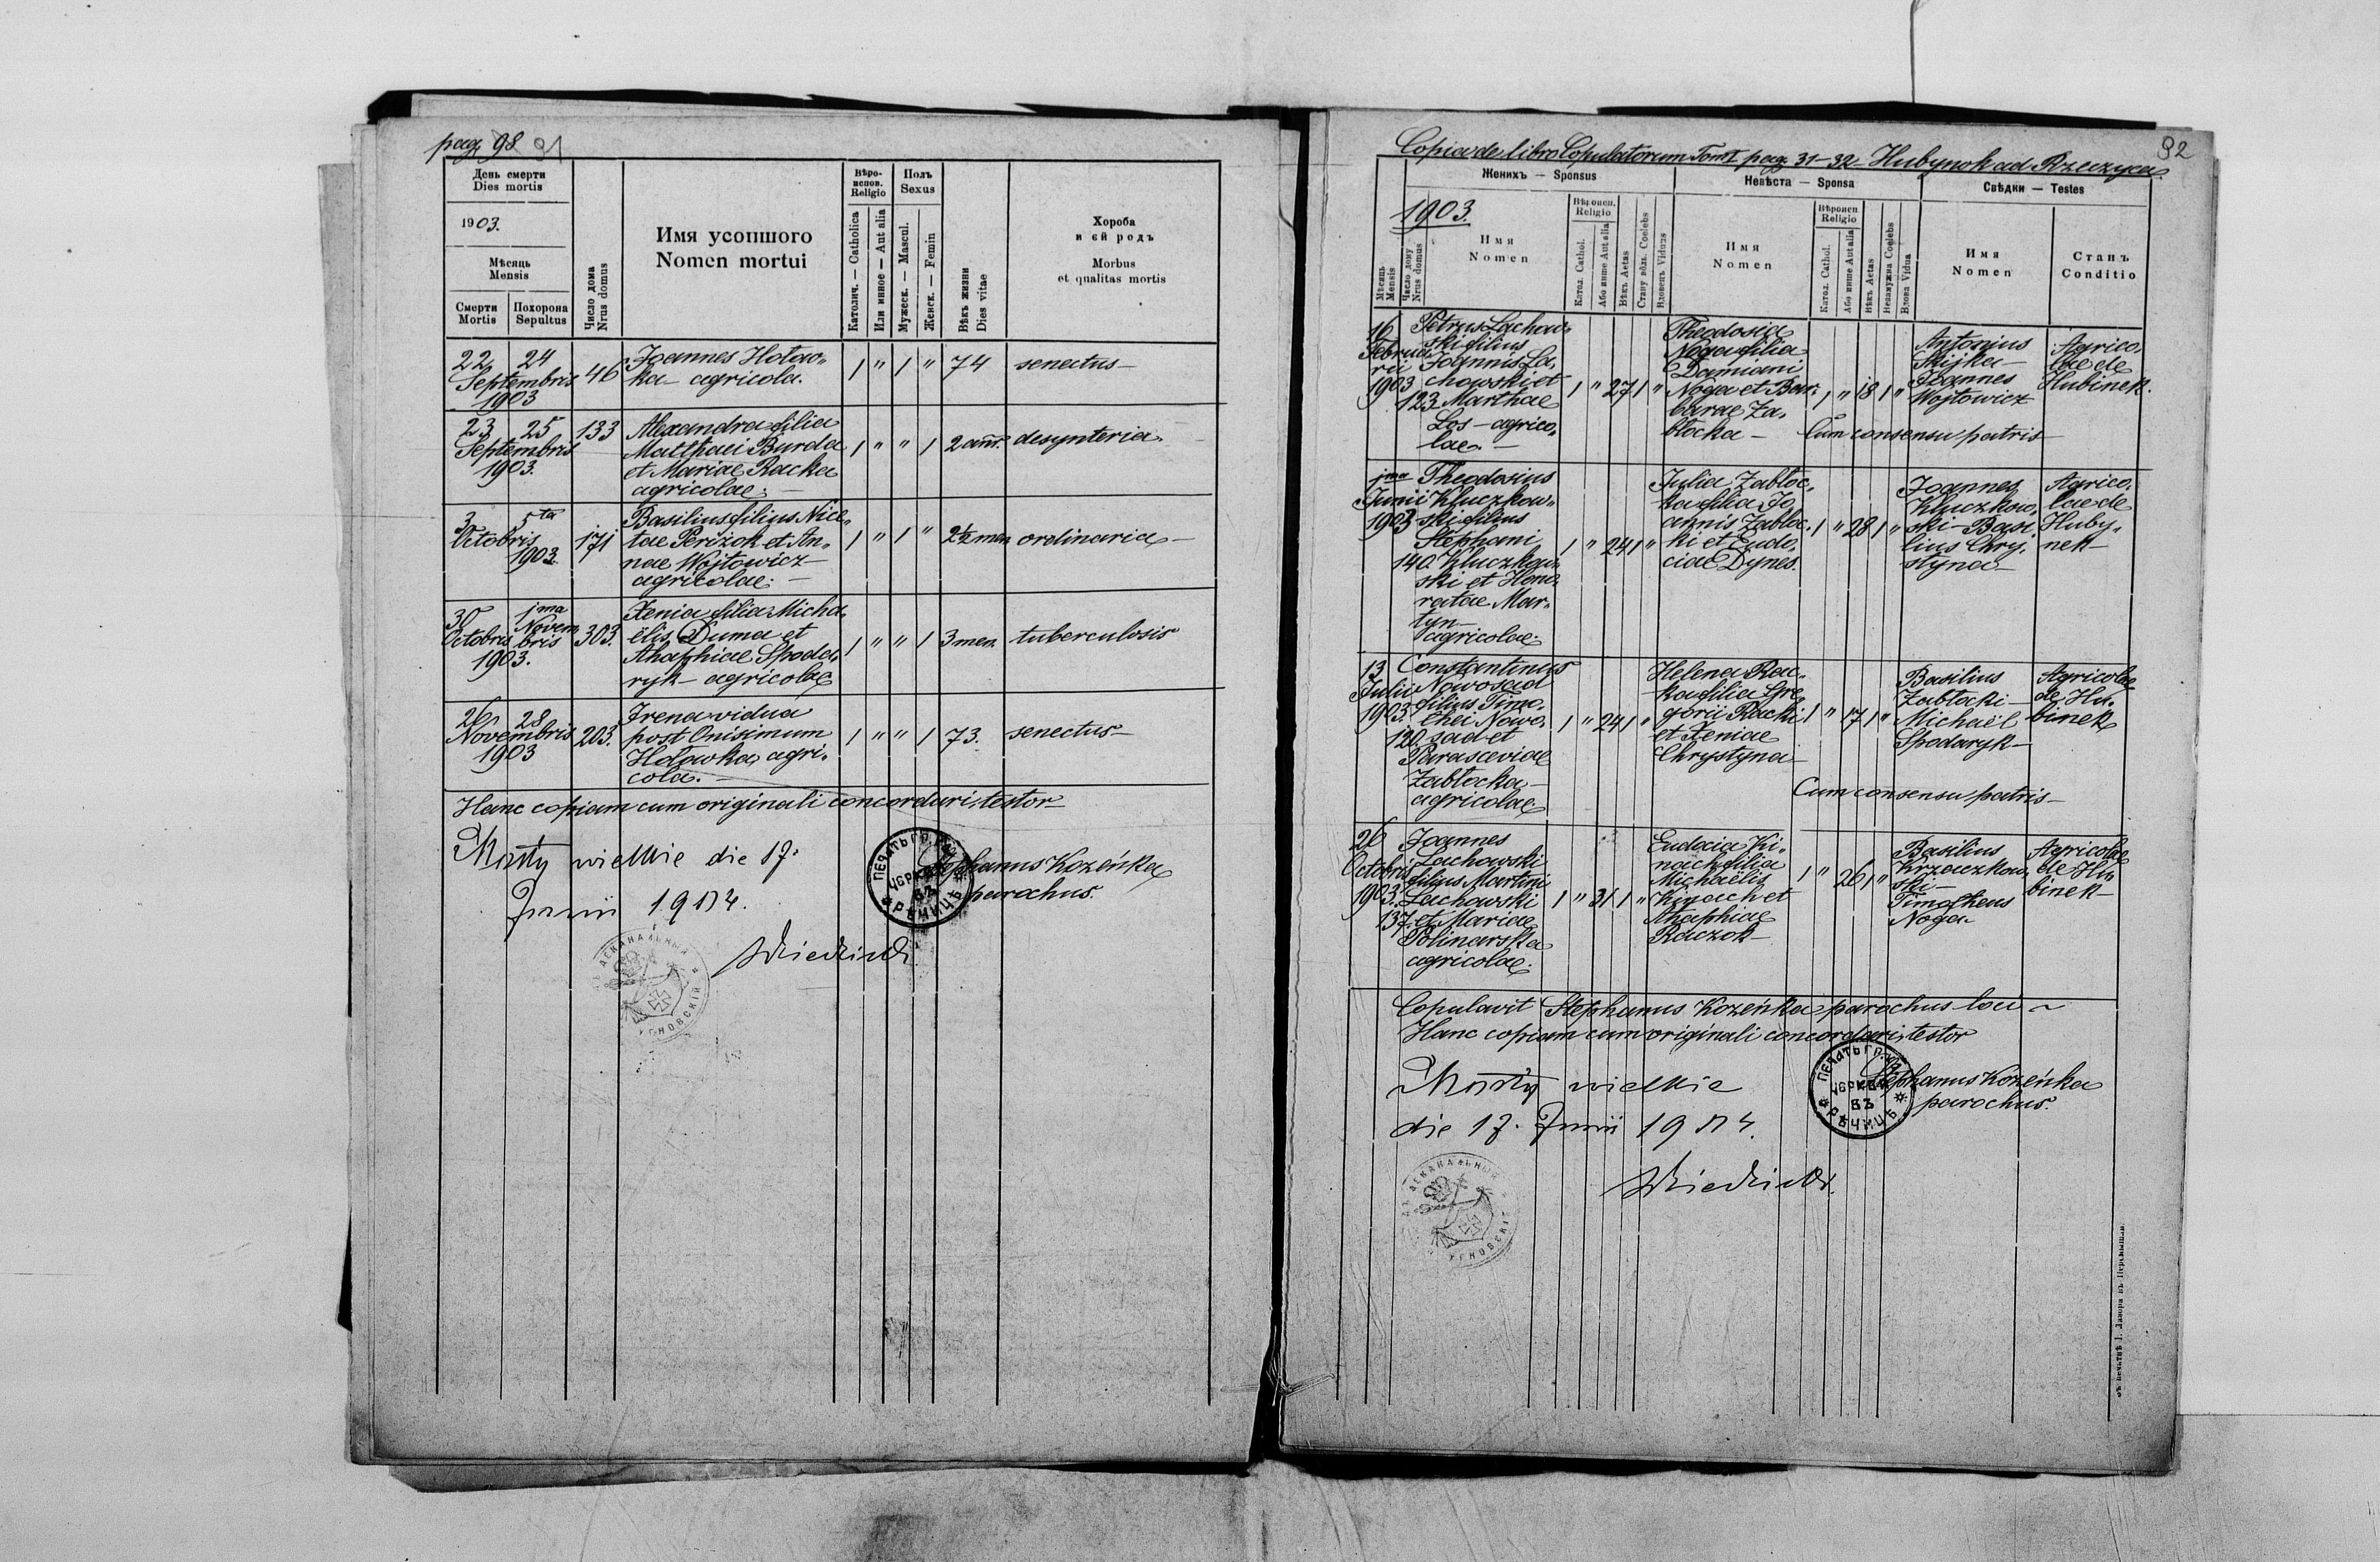 pag. 98 91
День смерти
Dies mortis
1903.
Мѣсяць
Mensis
Смерти
Mortis
Похорона
Sepultus
Число дома
Nrus domus
Имя усопшого
Nomen mortui
Вѣро-
испов.
Religio
Католич. — Catholica
Или инное — Aut alia
Полъ
Sexus
Мужеск. — Mascul.
Женск. — Femin
Вѣкъ жизни
Dies vitae
Хороба
и єй родъ
Morbus
et qualitas mortis
22 24
Septembris
1903
46
Joannes Hotaw„
ka — agricola.
1 " 1 " 74 senectus —
23 25
Septembris
1903.
133
Alexandra filia
Matthaei Burda
et Mariae Racka
agricolae. —
1 " " 1 2 ann. desynteria.
3 5ta
Octobris
1903.
171
Basilius filius Nice„
tae Perizok et An„
nae Wojtowicz
agricolae. —
1 " 1 " 2½ men ordinaria —
30 1ma
Octobris Novem
bris
1903.
303.
Xenia filia Micha„
ëlis Duma et
Ahaphiae Spoda„
ryk — agricolae
1 " " 1 3 men. tuberculosis
26 28
Novembris
1903
203.
Irena vidua
post Onisimum
Hotawka, agri„
cola. —
1 " " 1 73. senectus —
Hanc copiam cum originali concordari, testor —
Mosty wielkie die 17.
Junii 1904.
Stephanus Kozeńka
parochus.
ПЕЧАТЬ ГР.
ЦЕРКВИ
ВЪ
РѢЧИЦѢ
ДЕКАНАЛЬНЫЙ
УГНОВСКІЙ
92
Copia de libro Copulatorum Tom I pag. 31–32 — Hubynok ad Rzeczyca.
Женихъ — Sponsus
Невѣста — Sponsa
Свѣдки — Testes
1903.
Мѣсяць
Mensis
Число дому
Nrus domus
Имя
Nomen
Вѣроисп.
Religio
Катол. Cathol.
Або инше Aut alia
Вѣкъ Aetas
Стану вѣль. Coelebs
Вдовецъ Viduus
Имя
Nomen
Вѣроисп.
Religio
Катол. Cathol.
Або инше Aut alia
Вѣкъ Aetas
Незамужна Coelebs
Вдова Vidua
Имя
Nomen
Станъ
Conditio
16
Februa
rii
1903
123
Petrus Lachow„
ski filius
Joannis La„
chowski et
Marthae
Los — agrico„
lae. —
1 " 27 1 "
Theodosia
Noga filia
Damiani
Noga et Bar„
barae Za„
blocka —
1 " 18 1 "
Cum consensu patris
Antonius
Skijka —
Joannes
Wojtowicz
Agrico„
lae de
Hubinek.
1ma
Junii
1903
140
Theodosius
Kluczkow„
ski filius
Stephani
Kluczkow„
ski et Hono„
ratae Mar„
tyn —
agricolae.
1 " 24 1 "
Julia Zabloc„
ka filia Jo„
annis Zabloc„
ki et Eudo„
ciae Dynes.
1 " 28 1 "
Joannes
Kluczkow„
ski — Basi„
lius Chry„
styna —
Agrico„
lae de
Huby„
nek —
13
Julii
1903
120
Constantinus
Nowosad
filius Timo„
thei Nowo„
sad et
Parasceviae
Zablocka —
agricolae
1 " 24 1 "
Helena Rac„
ka filia Gre„
gorii Racki
et Xeniae
Chrystyna —
1 " 17 1 "
Cum consensu patris —
Basilius
Zablacki —
Michaël
Spodaryk —
Agricolae
de Hu„
binek
26
Octobris
1903.
137.
Joannes
Lachowski
filius Martini
Lachowski
et Mariae
Polinarska
agricolae.
1 " 31 1 "
Eudocia Ki„
nach filia
Michaëlis
Kinach et
Ahaphiae
Raczok —
1 " 26 1 "
Basilius
Krzaczkow„
ski —
Timotheus
Noga —
Agricolae
de Hu„
binek —
Copulavit Stephanus Kozeńka parochus loci ~
Hanc copiam cum originali concordari, testor
Mosty wielkie
die 17. Junii 1904.
Stephanus Kozeńka
parochus.
ПЕЧАТЬ ГР.
ЦЕРКВИ
ВЪ
РѢЧИЦѢ
ДЕКАНАЛЬНЫЙ
УГНОВСКІЙ